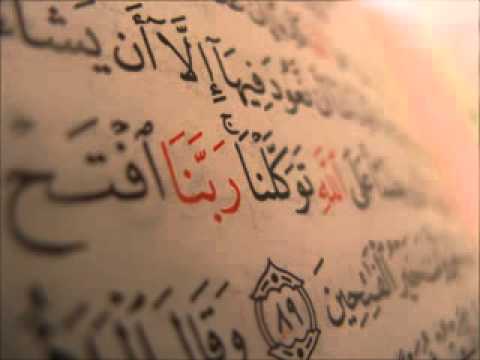 نَّعُودَ فِيهَآ إِلَّآ أَن يَشَآءَ
عَلَى ٱللَّهِ تَوَكَّلْنَا ۚ رَبَّنَا ٱفْتَحْ
خَيْرُ ٱلْفَٰتِحِينَ ٨٩ وَقَالَ